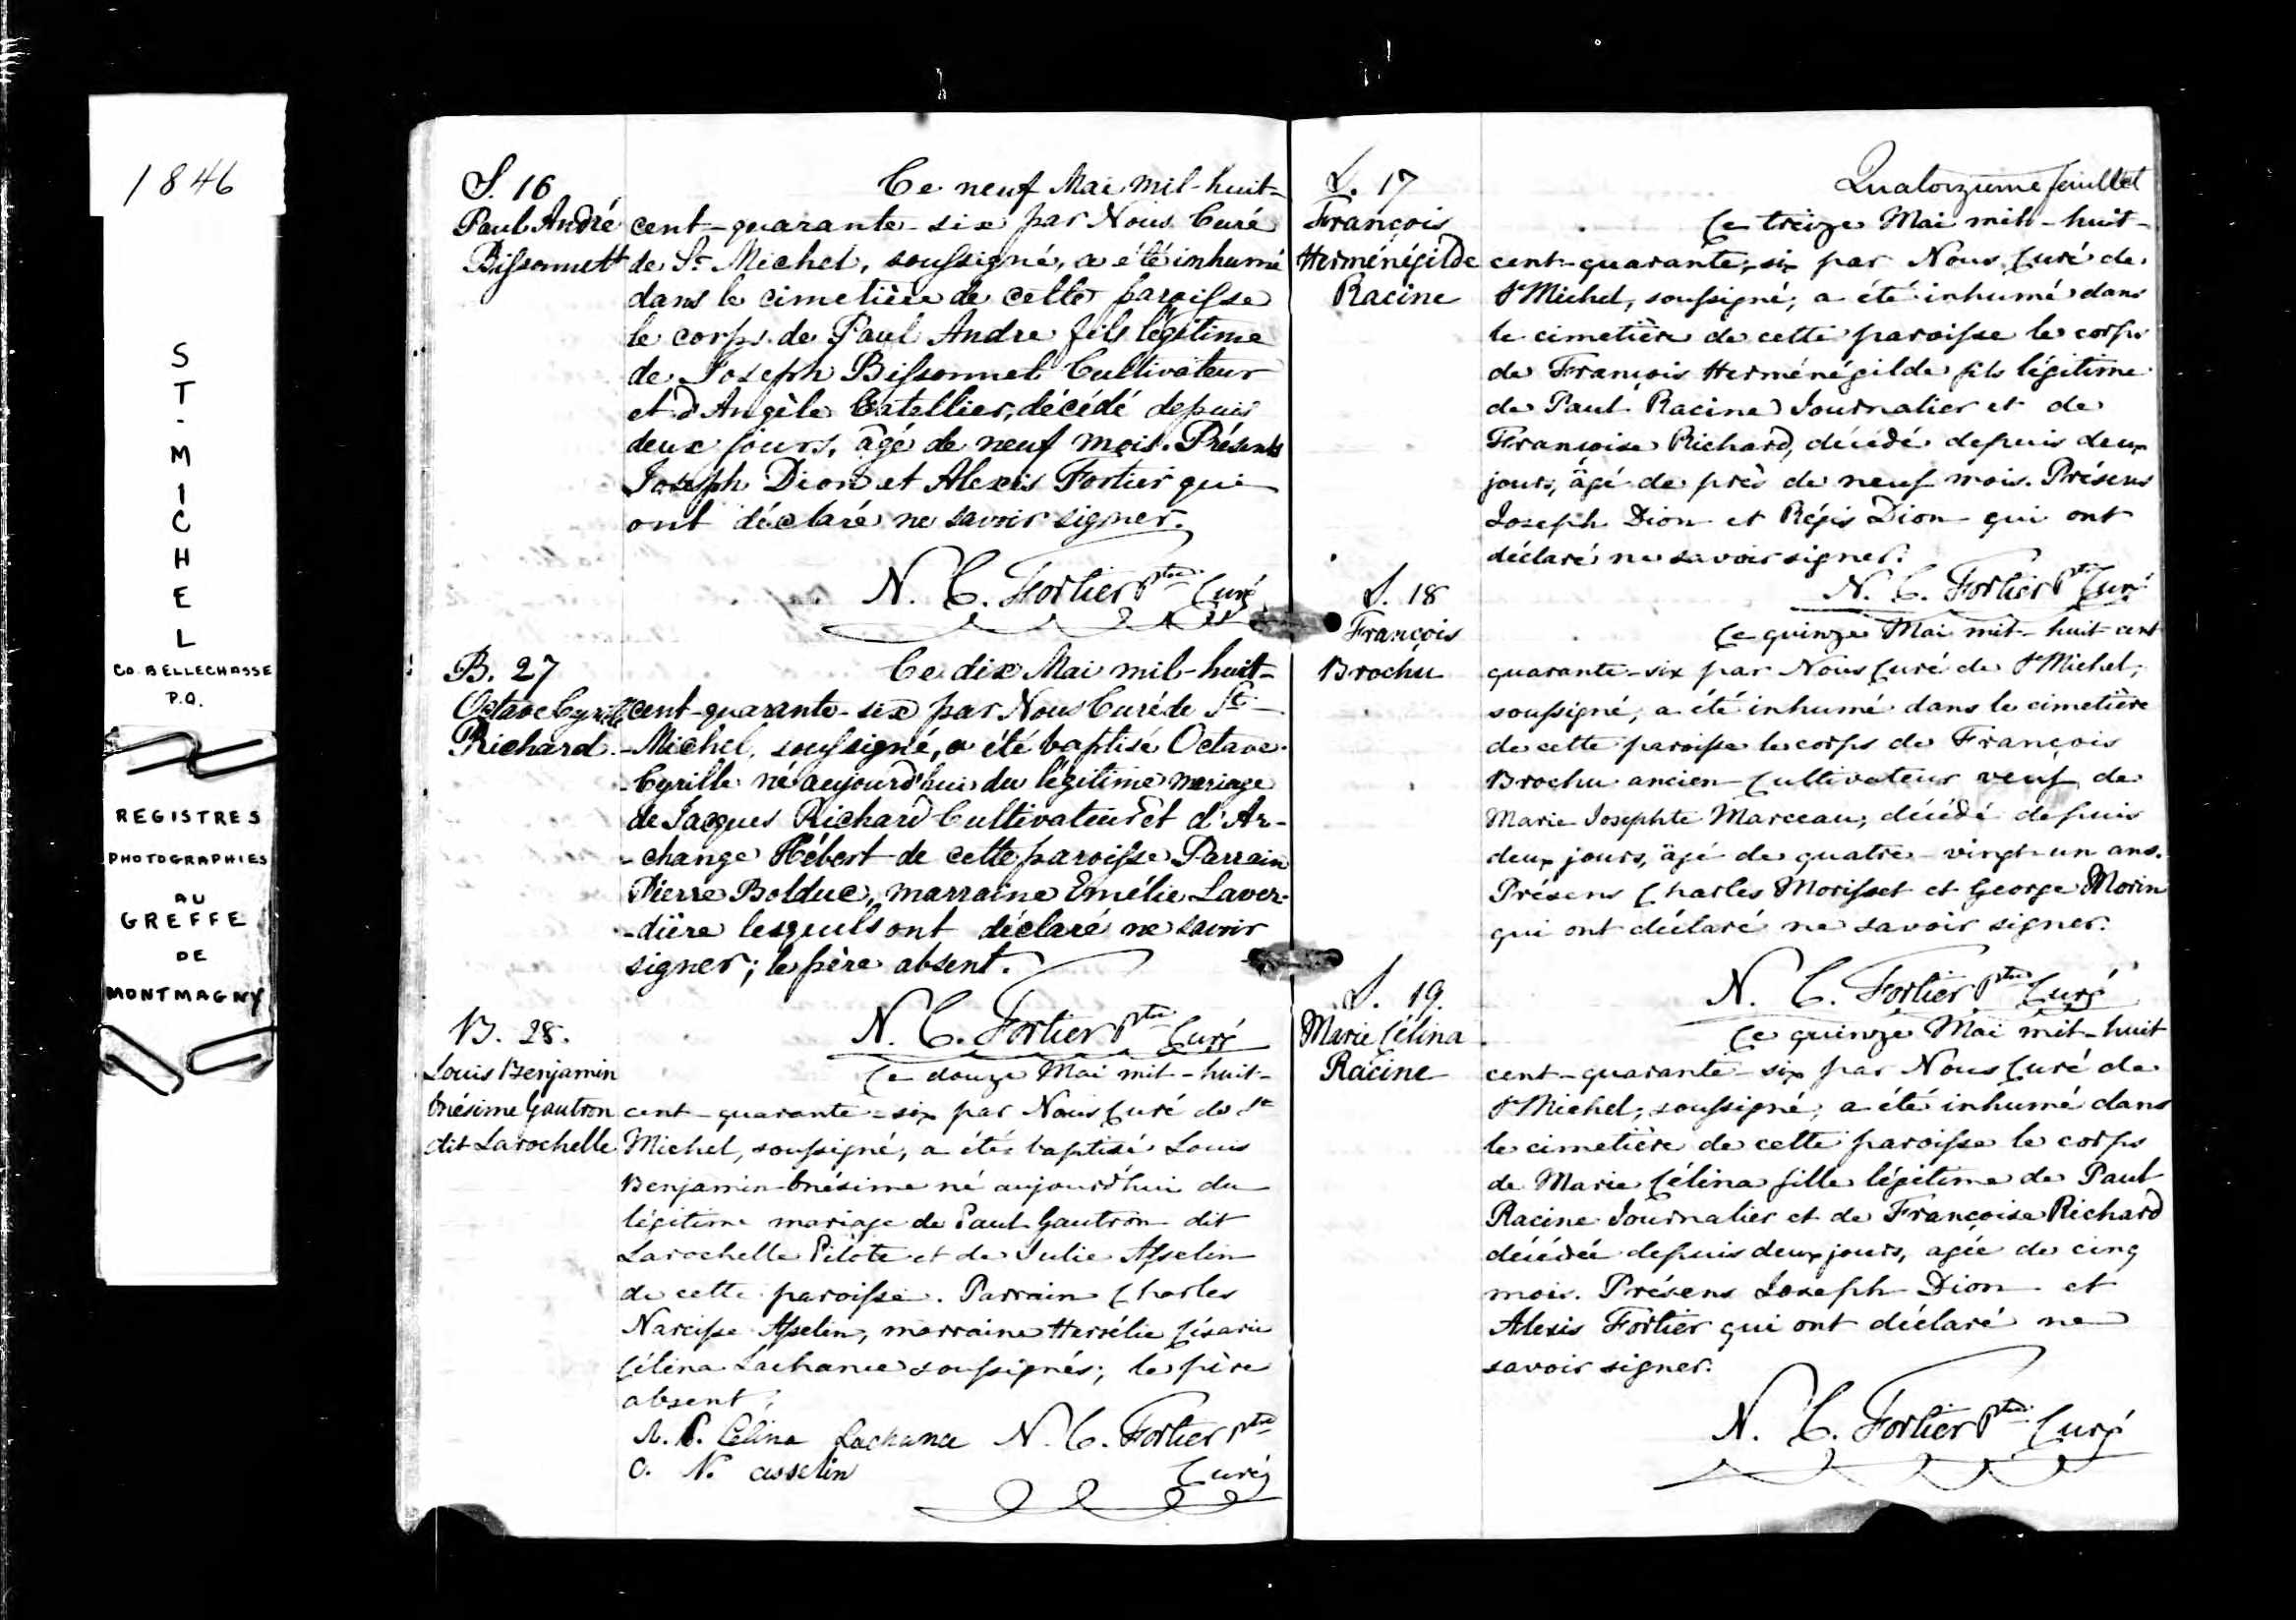 1846
S
T
-
M
I
C
H
E
L
CO. BELLECHASSE
P.Q.
REGISTRES
PHOTOGRAPHIES
AU
GREFFE
DE
MONTMAGNY
S. 16
Paul André
Bissonnett
Ce neuf Mai mil-huit-
cent-quarante-six par Nous Curé
de St Michel, soussigné, a été inhumé
dans le cimetière de cette paroisse
le corps de Paul Andre fils légitime
de Joseph Bissonnet Cultivateur
et d'Angèle Catellier, décédé depuis
deux jours, âgé de neuf mois. Présents
Joseph Dion et Alexis Fortier qui
ont déclaré ne savoir signer.
N. C. Fortier Ptre Curé
B. 27
Octave Cyrille
Richard
Ce dix Mai mil-huit-
cent-quarante-six par Nous Curé de St-
-Michel, soussigné, a été baptisé Octave
Cyrille né aujourd'hui du légitime mariage
de Jacques Richard Cultivateur et d'Ar-
-change Hébert de cette paroisse Parrain
Pierre Bolduc, marraine Emélie Laver-
-dière lesquels ont déclaré ne savoir
signer; le père absent.
N. C. Fortier Ptre Curé
B. 28.
Louis Benjamin
Onésime Gautron
dit Larochelle
Ce douze Mai mil-huit-
cent-quarante-six par Nous Curé de St
Michel, soussigné, a été baptisé Louis
Benjamin Onésime né aujourd'hui du
légitime mariage de Paul Gautron dit
Larochelle Pilote et de Julie Asselin
de cette paroisse. Parrain Charles
Narcisse Asselin, marraine Hersélie Césarie
Célina Lachance soussignés; le père
absent.
Célina Lachance N. C. Fortier Ptre
C. N. asselin Curé
Quatorzième feuillet
S. 17
François
Herménégilde
Racine
Ce treize Mai mil-huit-
cent-quarante-six par Nous Curé de
St Michel, soussigné, a été inhumé dans
le cimetière de cette paroisse le corps
de François Herménégilde fils légitime
de Paul Racine Journalier et de
Françoise Richard, décédé depuis deux
jours, âgé de près de neuf mois. Présens
Joseph Dion et Régis Dion qui ont
déclaré ne savoir signer.
N. C. Fortier Ptre Curé
S. 18
François
Brochu
Ce quinze Mai mil-huit-cent
quarante-six par Nous Curé de St Michel,
soussigné, a été inhumé dans le cimetière
de cette paroisse le corps de François
Brochu ancien Cultivateur veuf de
Marie Josephte Marceau, décédé depuis
deux jours, âgé de quatre-vingt-un ans.
Présens Charles Morisset et George Morin
qui ont déclaré ne savoir signer.
N. C. Fortier Ptre Curé
S. 19.
Marie Célina
Racine
Ce quinze Mai mil-huit
cent-quarante-six par Nous Curé de
St Michel, soussigné, a été inhumé dans
le cimetière de cette paroisse le corps
de Marie Célina fille légitime de Paul
Racine Journalier et de Françoise Richard
décédée depuis deux jours, agée de cinq
mois. Présens Joseph Dion et
Alexis Fortier qui ont déclaré ne
savoir signer.
N. C. Fortier Ptre Curé